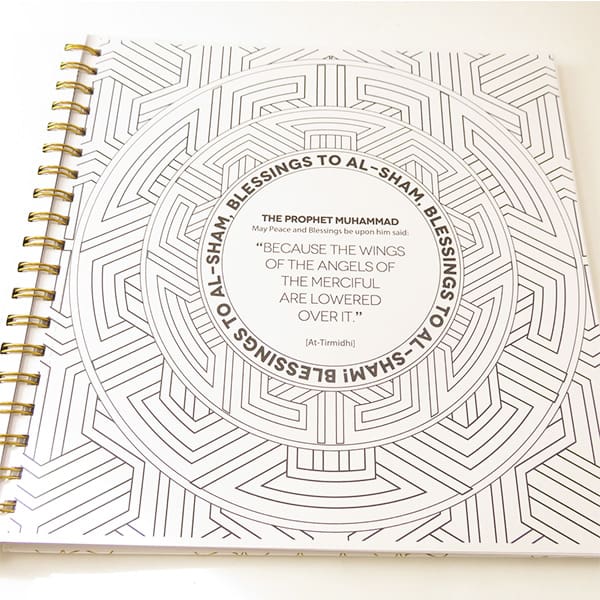 BLESSINGS TO AL-SHAM, BLESSINGS TO AL-SHAM, BLESSINGS TO AL-SHAM!
THE PROPHET MUHAMMAD
May Peace and Blessings be upon him said:
“BECAUSE THE WINGS
OF THE ANGELS OF
THE MERCIFUL
ARE LOWERED
OVER IT.”
[At-Tirmidhi]